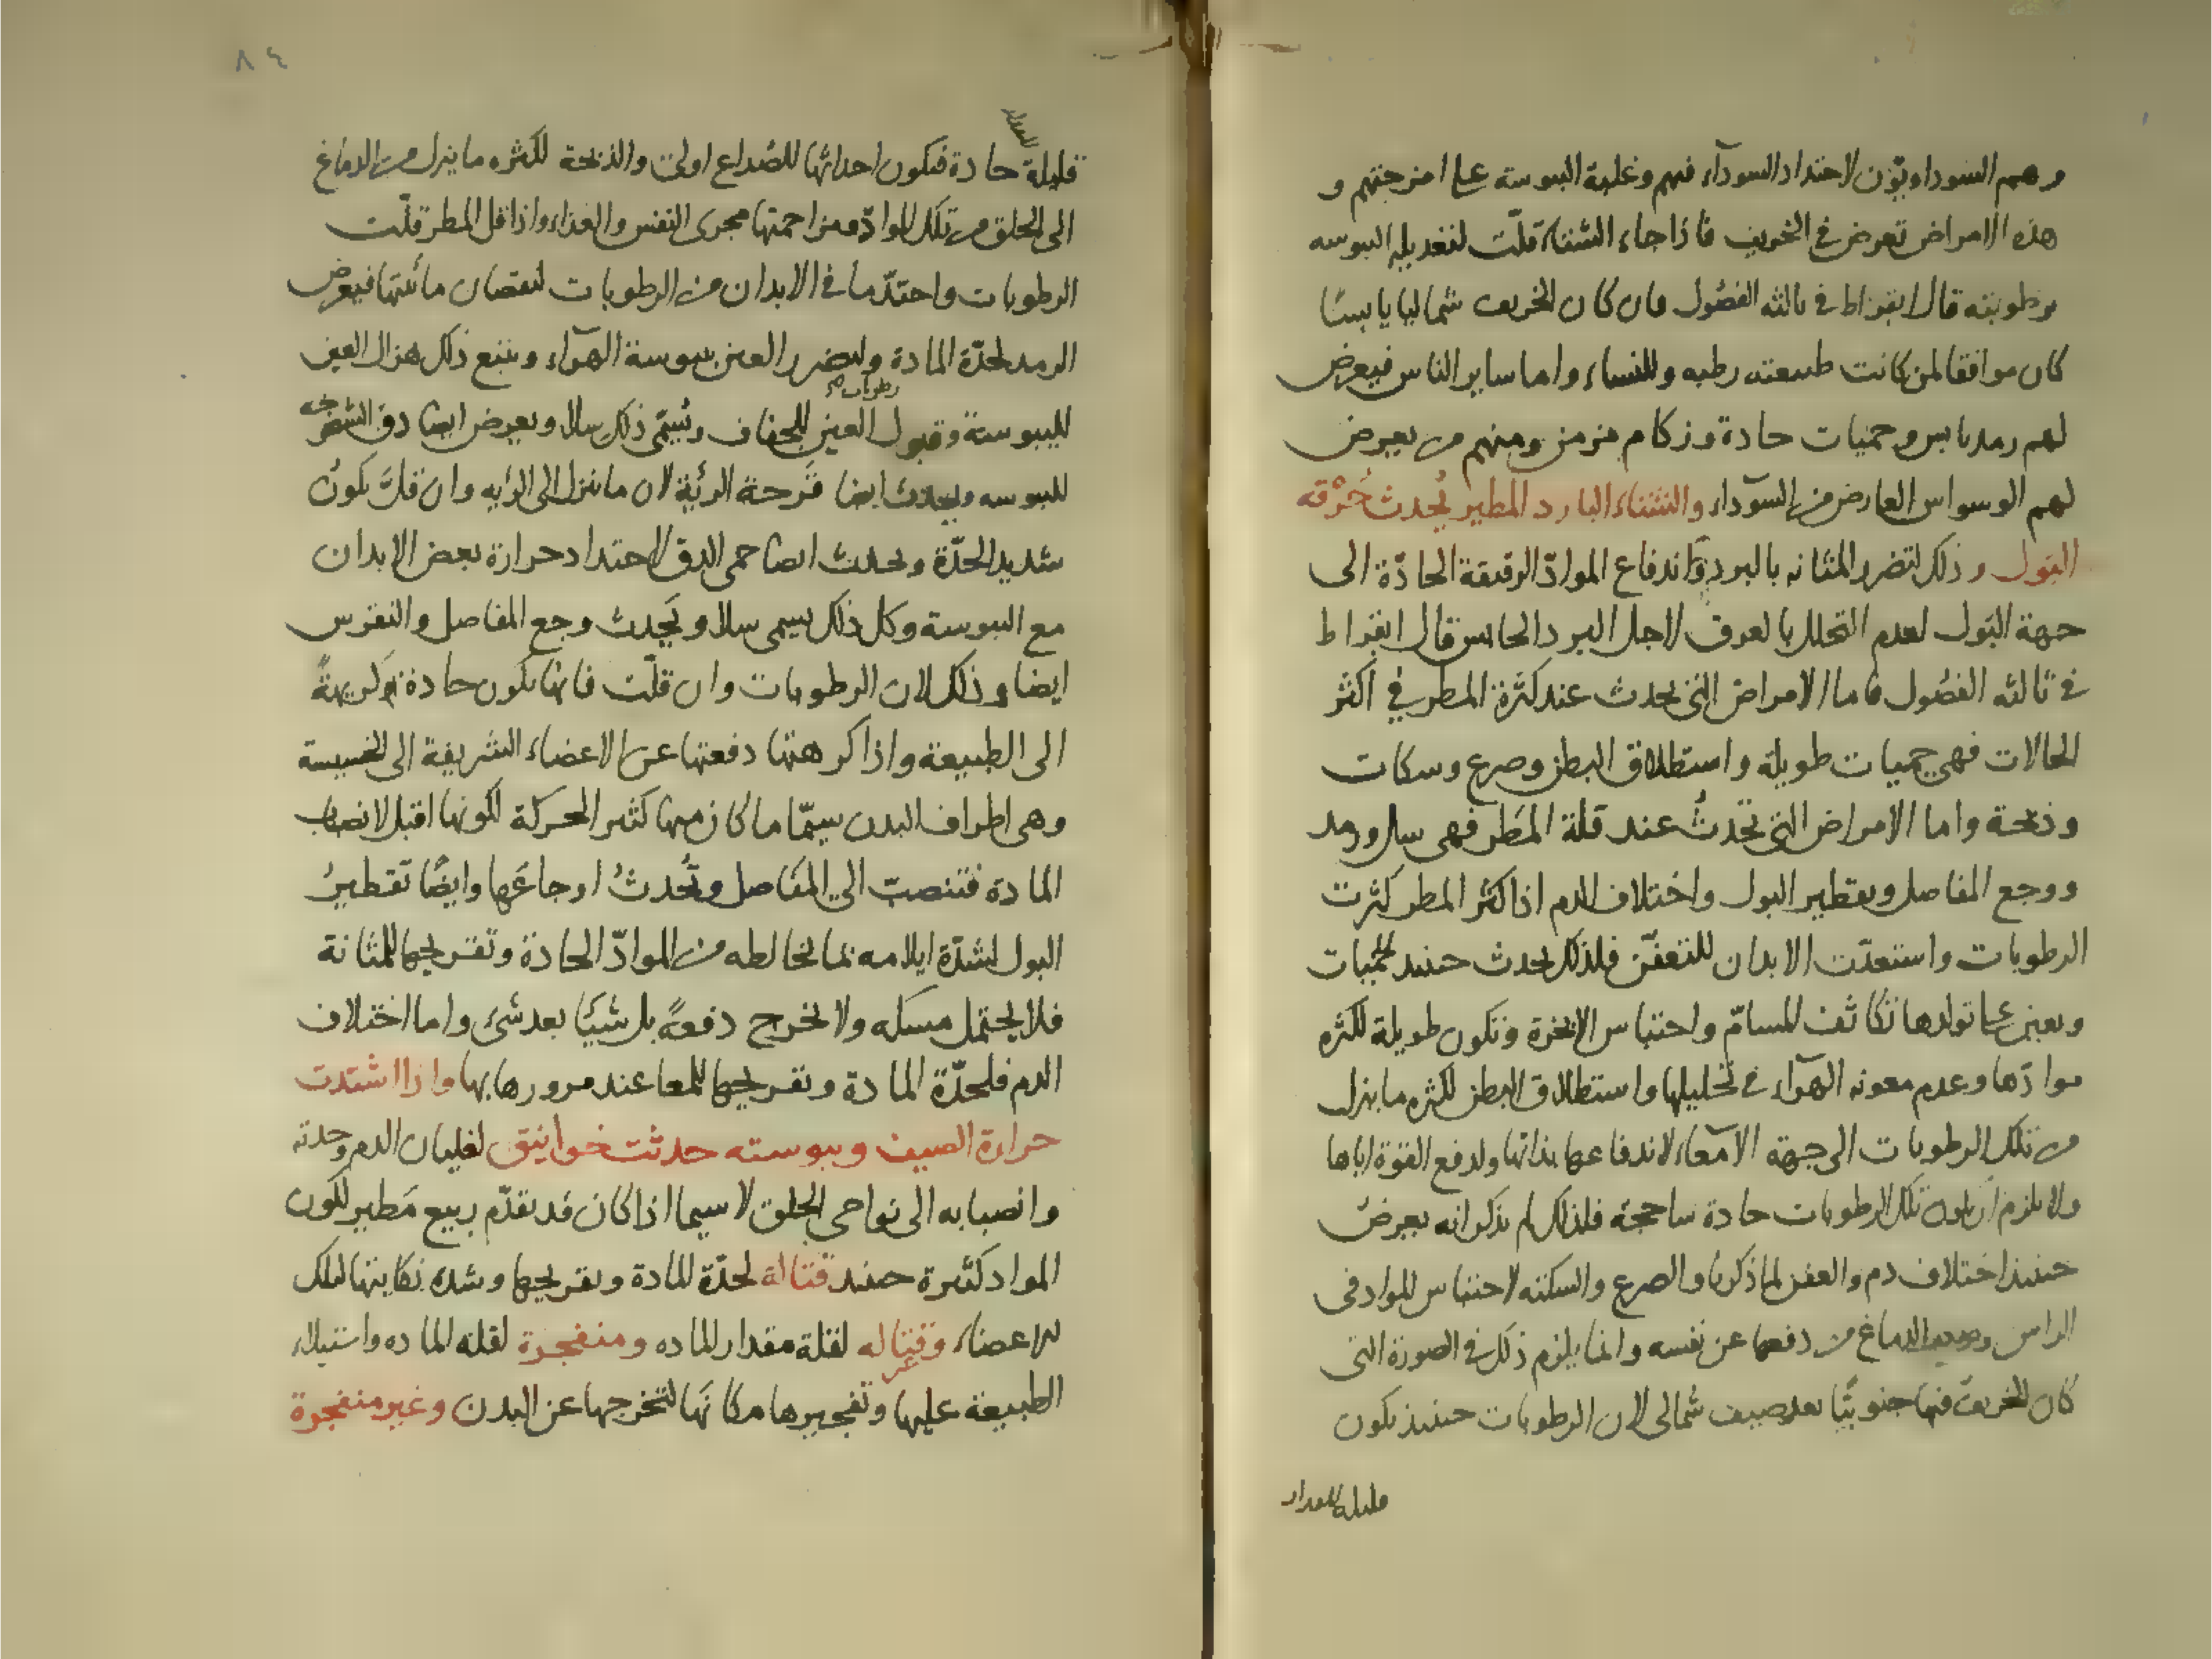 وهم السوداويّون لاحتداد السودآء فيهم وغلبة اليبوسه على امزجتهم و
هذه الامراض تعرض في الخريف فاذا جاء الشتاء قلّت لتعديله اليبوسه
برطوبته قال ابقراط في ثالثه الفصُول فان كان الخريف شماليا يابسًا
كان موافقا لمن كانت طبيعته رطبه وللنساء واما ساير الناس فيعرض
لهم رمد يابس وحميات حادة وزكام مزمن ومنهم من يعرض
لهم الوسواس العارض من السودآء والشتاء البارد المطير يُحدث حُرْقه
البَول وذلك لتضرر المثانه بالبرد واندفاع الموادّ الرقيقة الحادّة الى
جهة البَول لعدم التحلل بالعرق لاجل البرد الحابس قال ابقراط
في ثالثه الفصُول فاما الامراض التي تحدث عند كثرة المطر في اكثر
الحالات فهي حميات طويلة واستطلاق البطن وصرع وسكات
وذبحة واما الامراض التي تحدثُ عند قلة المطر فهي سل ورمد
ووجع المفاصل وتقطير البول واختلاف الدم اذا كثر المطر كثرت
الرطوبات واستعدّت الابدان للتعفّن فلذلك يحدث حينئذ الحميات
ويعين على تولدها تكاثف المسامّ واحتباس الابخرة وتكون طويلة لكثره
موادّها وعدم معونه الهوآء في تحليلها واستطلاق البطن لكثره ما ينزل
من تلك الرطوبات الى جهة الامعآء لاندفاعها بذاتها ولدفع القوّة اياها
ولا يلزم ان يكون تلك الرطوبات حادة ساحجة فلذلك لم يذكر انه يعرض
حينئذ اختلاف دم والعفن لما ذكرنا والصرع والسكته لاحتباس المواد في
الراس الدماغ من دفعها عن نفسه وانما يلزم ذلك في الصورة التي
كان الخريف فيها جنوبيّا بعد صيف شمالى لان الرطوبات حينئذ تكون
قليلة المقدار
٨٤
المقدار
قليلة حادة فتكون احداثها للصداع اولى والذبحة لكثره ما ينزل من الدماغ
الى الحلق من تلك الموادّ ومزاحمتها مجرى النفس والغذاء واذا قل المطر قلّت
الرطوبات واحتدّ ما في الابدان من الرطوبات لنقصان مائيتها فيعرض
الرمد لحدّة المادة ولتضرر العين بيبوسة الهوآء ويتبع ذلك هزال العين
رطوبات
لليبوسة وقبول العين للجفاف ويُسَمّى ذلك سلا ويعرض ايضا دق الشيخوخه
لليبوسه ويحدث ايضا قَرحة الرئة لان ما ينزل الى الرئه وان قلَّ يكونُ
شديد الحدّة ويحدث ايضا حمى الدق لاحتداد حرارة بعض الابدان
مع اليبوسة وكل ذلك يسمى سلا ويَحدث وجع المفاصل والنقرس
ايضا وذلك لان الرطوبات وان قلّت فانها تكون حادة وكريهةً
الى الطبيعة واذا كرهتها دفعتها عن الاعضاء الشريفة الى الخسيسة
وهى اطراف البدن سيمّا ما كان منها كثير الحركة لكونها اقبل لانصباب
المادة فتنصبّ الي المفَاصل وتُحدثُ اوجاعَها وايضًا تقطيرُ
البول لشدّة ايلامه بما يخالطه من الموادّ الحادة وتقريحها للمثانة
فلا يحتمل مسكه ولا يخرج دفعةً بل شيئا بعد شئ واما اختلاف
الدم فلحدّة المادة وتقريحها للمعا عند مرورها بها واذا اشتدت
حرارة الصيف ويبوسته حدثت خوانيق لغليان الدم وحدته
وانصبابه الى نواحى الحلق لا سيما اذا كان قد تقدّم ربيع مَطير لكون
المواد كثيرة حينئذ قتالة لحدّة المادة وتقريحها وشده نكايتها لتلك
الاعضاء وغير قتاله لقلة مقدار الماده ومنفجرة لقله الماده واستيلاء
الطبيعة عليها وتفجيرها مكانَها لتخرجها عن البدن وغير منفجرة